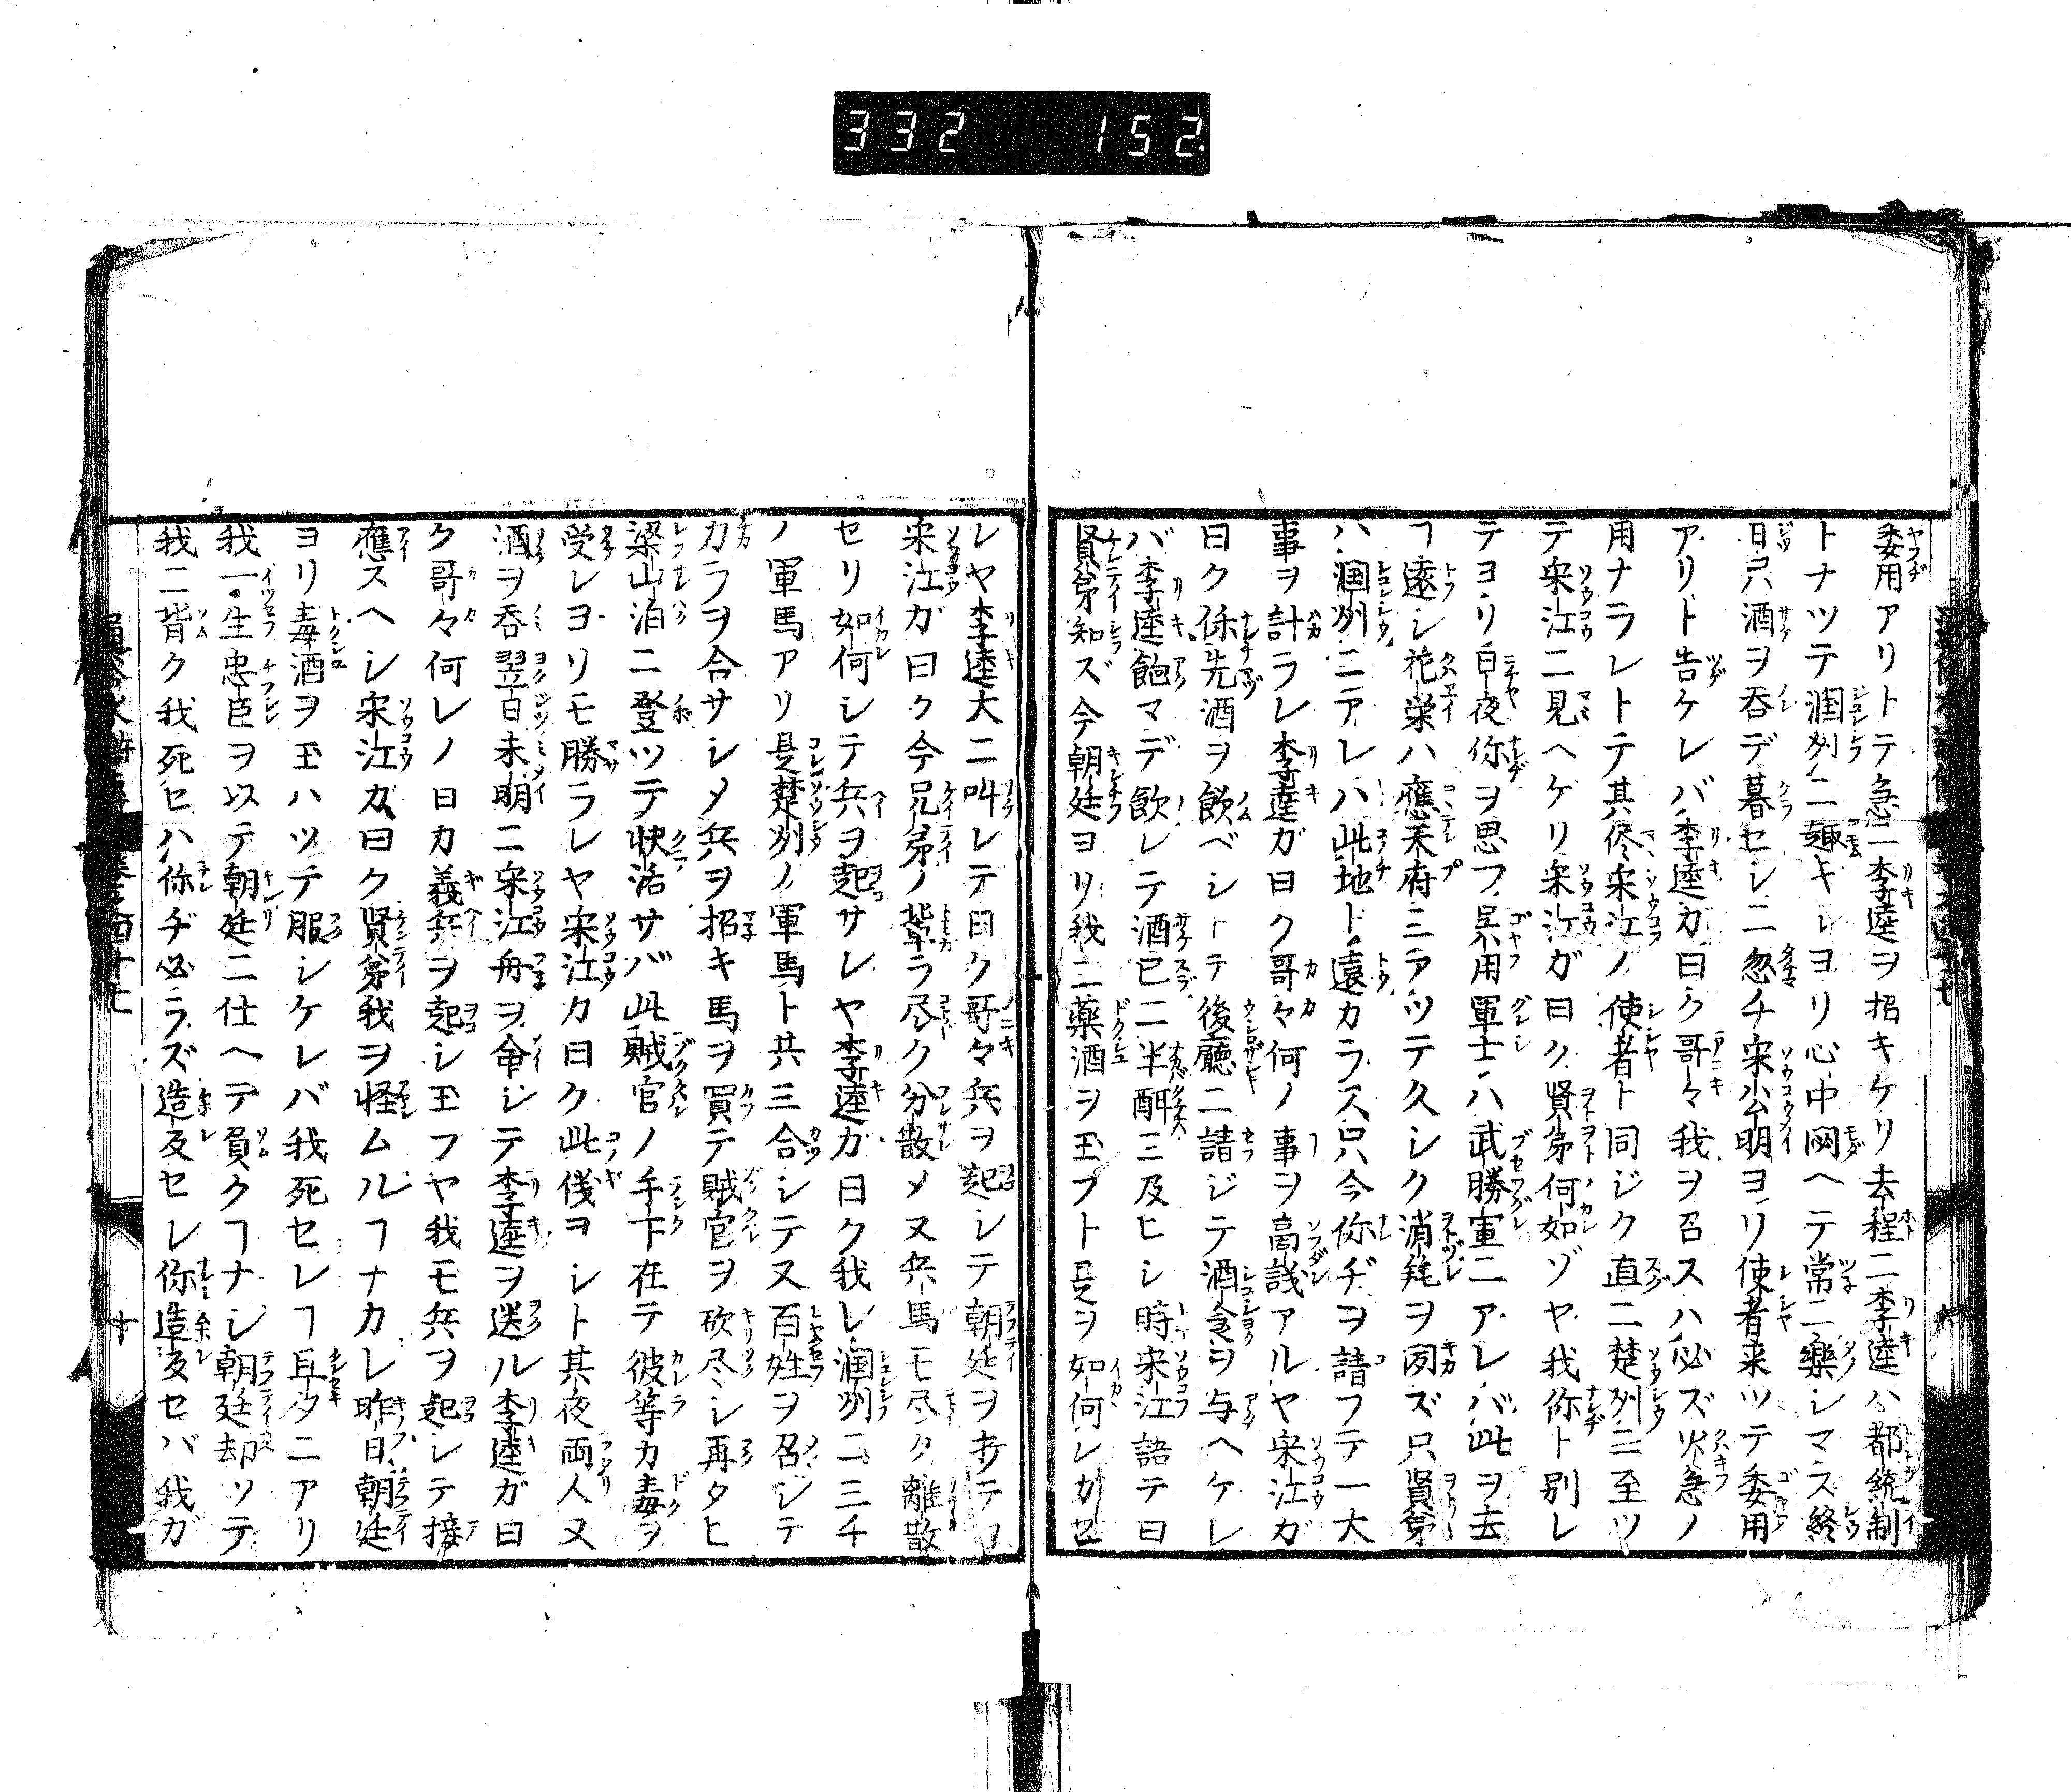 332 152
委用アリトテ急ニ李逵ヲ招キケリ去程ニ李逵ハ都統制
トナツテ潤州ニ趣キシヨリ心中悶ヘテ常ニ樂シマス終
日只酒ヲ呑デ暮セシニ忽チ宋公明ヨリ使者来ツテ委用
アリト告ケレバ李逵ガ曰ク哥々我ヲ召スハ必ズ火急ノ
用ナラントテ其侭宋江ノ使者ト同ジク直ニ楚州ニ至ツ
テ宋江ニ見ヘケリ宋江ガ曰ク賢弟何如ゾヤ我你ト別レ
テヨリ日夜你ヲ思フ呉用軍士ハ武勝軍ニアレバ此ヲ去
ヿ遠シ花榮ハ應天府ニアツテ久シク消耗ヲ聞ズ只賢弟
ハ潤州ニアレハ此地ト遠カラス只今你ヂヲ請フテ一大
事ヲ計ラン李逵ガ曰ク哥々何ノ事ヲ高議アルヤ宋江ガ
曰ク你先酒ヲ飲ベシトテ後廳ニ請ジテ酒食ヲ与ヘケレ
バ李逵飽マデ飲シテ酒已ニ半酣ニ及ヒシ時宋江語テ曰
賢弟知ズ今朝廷ヨリ我ニ藥酒ヲ玉フト是ヲ如何シカセ
ンヤ李逵大ニ叫ンテ曰ク哥々兵ヲ起シテ朝廷ヲ打テヨ
宋江ガ曰ク今兄弟ノ輩ラ尽ク分散メ又兵馬モ尽ク離散
セリ如何シテ兵ヲ起サンヤ李逵ガ曰ク我レ潤州ニ三千
ノ軍馬アリ是楚州ノ軍馬ト共ニ合シテ又百姓ヲ召シテ
力ラヲ合サシメ兵ヲ招キ馬ヲ買テ賊官ヲ砍尽シ再タヒ
梁山泊ニ登ツテ快活サバ此賊官ノ手下在テ彼等カ毒ヲ
受ンヨリモ勝ラレヤ宋江カ曰ク此儀ヨシト其夜両人又
酒ヲ呑翌日未明ニ宋江舟ヲ命シテ李逵ヲ送ル李逵ガ曰
ク哥々何レノ日カ義兵ヲ起シ玉フヤ我モ兵ヲ起シテ接
應スヘシ宋江カ曰ク賢弟我ヲ怪ムルヿナカレ昨日朝廷
ヨリ毒酒ヲ玉ハツテ服シケレバ我死センヿ旦夕ニアリ
我一生忠臣ヲ以テ朝廷ニ仕ヘテ負クヿナシ朝廷却ツテ
我ニ背ク我死セハ你ヂ必ラズ造反セン你造反セバ我ガ